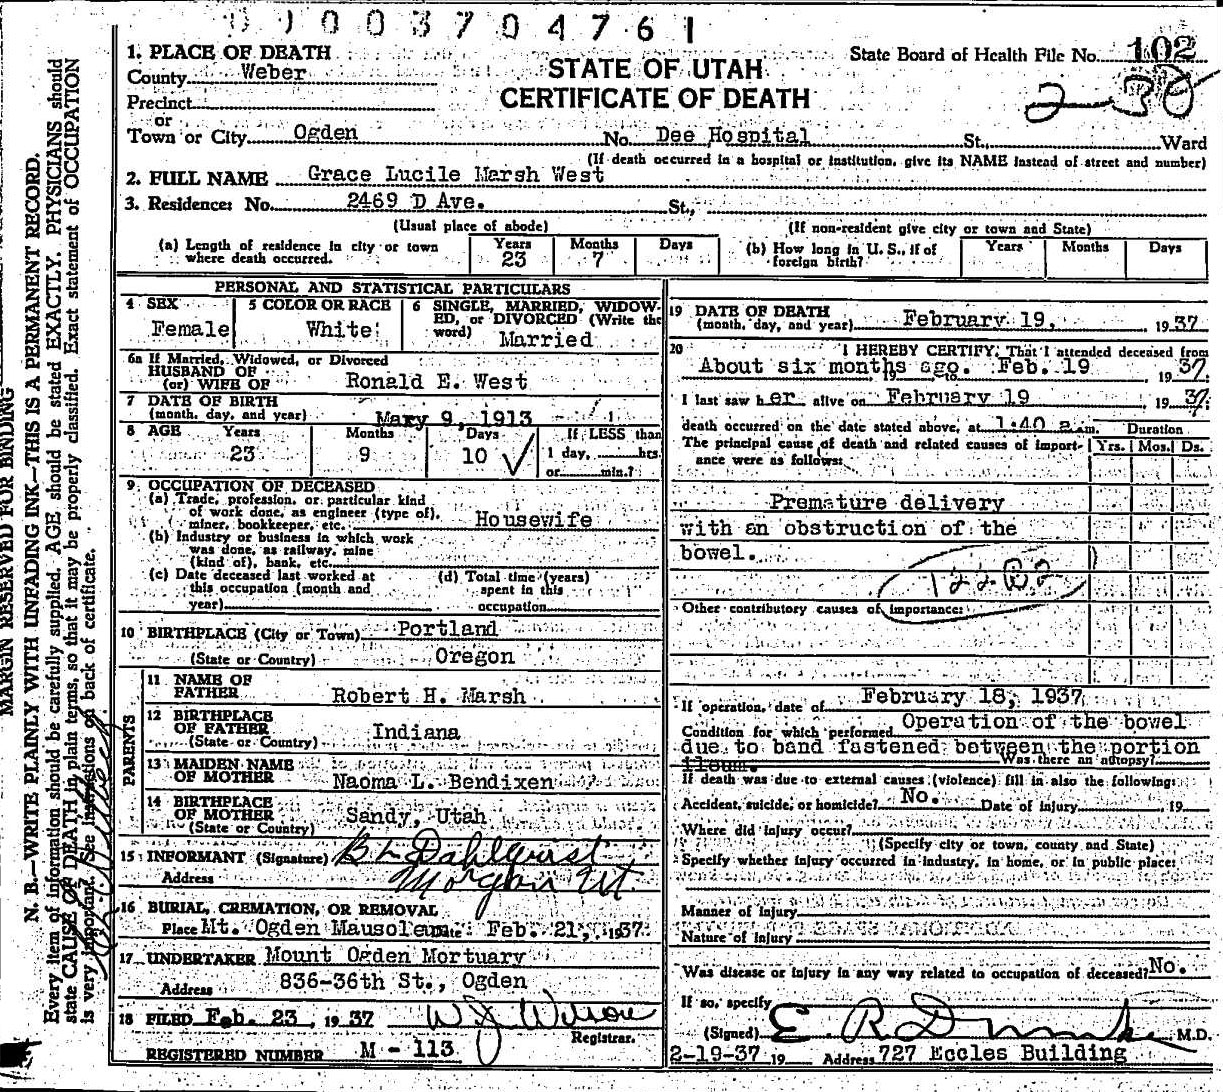 0 1 0 0 3 7 0 4 7 6 1
1. PLACE OF DEATH
County Weber
Precinct
or
Town or City Ogden
STATE OF UTAH
CERTIFICATE OF DEATH
State Board of Health File No. 102
2-38
No. Dee Hospital St., Ward
(If death occurred in a hospital or institution, give its NAME instead of street and number)
2. FULL NAME Grace Lucile Marsh West
3. Residence: No. 2469 D Ave. St.,
(Usual place of abode)
(If non-resident give city or town and State)
(a) Length of residence in city or town where death occurred. Years 23 Months 7 Days
(b) How long in U. S., if of foreign birth? Years Months Days
PERSONAL AND STATISTICAL PARTICULARS
4 SEX Female
5 COLOR OR RACE White
6 SINGLE, MARRIED, WIDOWED, or DIVORCED (Write the word) Married
6a If Married, Widowed, or Divorced
HUSBAND OF
(or) WIFE OF Ronald E. West
7 DATE OF BIRTH
(month, day, and year) Mary 9, 1913
8 AGE Years 23 Months 9 Days 10 If LESS than 1 day, hrs. or min.?
9. OCCUPATION OF DECEASED
(a) Trade, profession, or particular kind
of work done, as engineer (type of),
miner, bookkeeper, etc. Housewife
(b) Industry or business in which work
was done, as railway, mine
(kind of), bank, etc.
(c) Date deceased last worked at
this occupation (month and
year)
(d) Total time (years)
spent in this
occupation
10 BIRTHPLACE (City or Town) Portland
(State or Country) Oregon
PARENTS
11 NAME OF
FATHER Robert H. Marsh
12 BIRTHPLACE
OF FATHER Indiana
(State or Country)
13 MAIDEN NAME
OF MOTHER Naoma L. Bendixen
14 BIRTHPLACE
OF MOTHER Sandy, Utah
(State or Country)
15 INFORMANT (Signature) B L Dahlquist
Address Morgan Ut.
16 BURIAL, CREMATION, OR REMOVAL
Place Mt. Ogden Mausoleum Date Feb. 21, 1937
17 UNDERTAKER Mount Ogden Mortuary
Address 836-36th St., Ogden
18 FILED Feb. 23, 1937 W J Wilson
Registrar.
REGISTERED NUMBER M - 113
19 DATE OF DEATH
(month, day, and year) February 19, 1937
20 I HEREBY CERTIFY, That I attended deceased from
About six months ago. 19 to Feb. 19 1937
I last saw her alive on February 19 1937
death occurred on the date stated above, at 1:40 a.m. Duration
The principal cause of death and related causes of importance were as follows: Yrs. Mos. Ds.
Premature delivery
with an obstruction of the
bowel.
122 B2
Other contributory causes of importance:
If operation, date of February 18, 1937
Condition for which performed Operation of the bowel
due to band fastened between the portion
ileum. Was there an autopsy?
If death was due to external causes (violence) fill in also the following:
Accident, suicide, or homicide? No. Date of injury 19
Where did injury occur?
(Specify city or town, county and State)
Specify whether injury occurred in industry, in home, or in public place:
Manner of injury
Nature of injury
Was disease or injury in any way related to occupation of deceased? No.
If so, specify
(Signed) E. R. Dumke M.D.
2-19-37 19 Address 727 Eccles Building
MARGIN RESERVED FOR BINDING
N. B.—WRITE PLAINLY WITH UNFADING INK—THIS IS A PERMANENT RECORD.
Every item of information should be carefully supplied. AGE should be stated EXACTLY. PHYSICIANS should
state CAUSE OF DEATH in plain terms, so that it may be properly classified. Exact statement of OCCUPATION
is very important. See instructions on back of certificate.